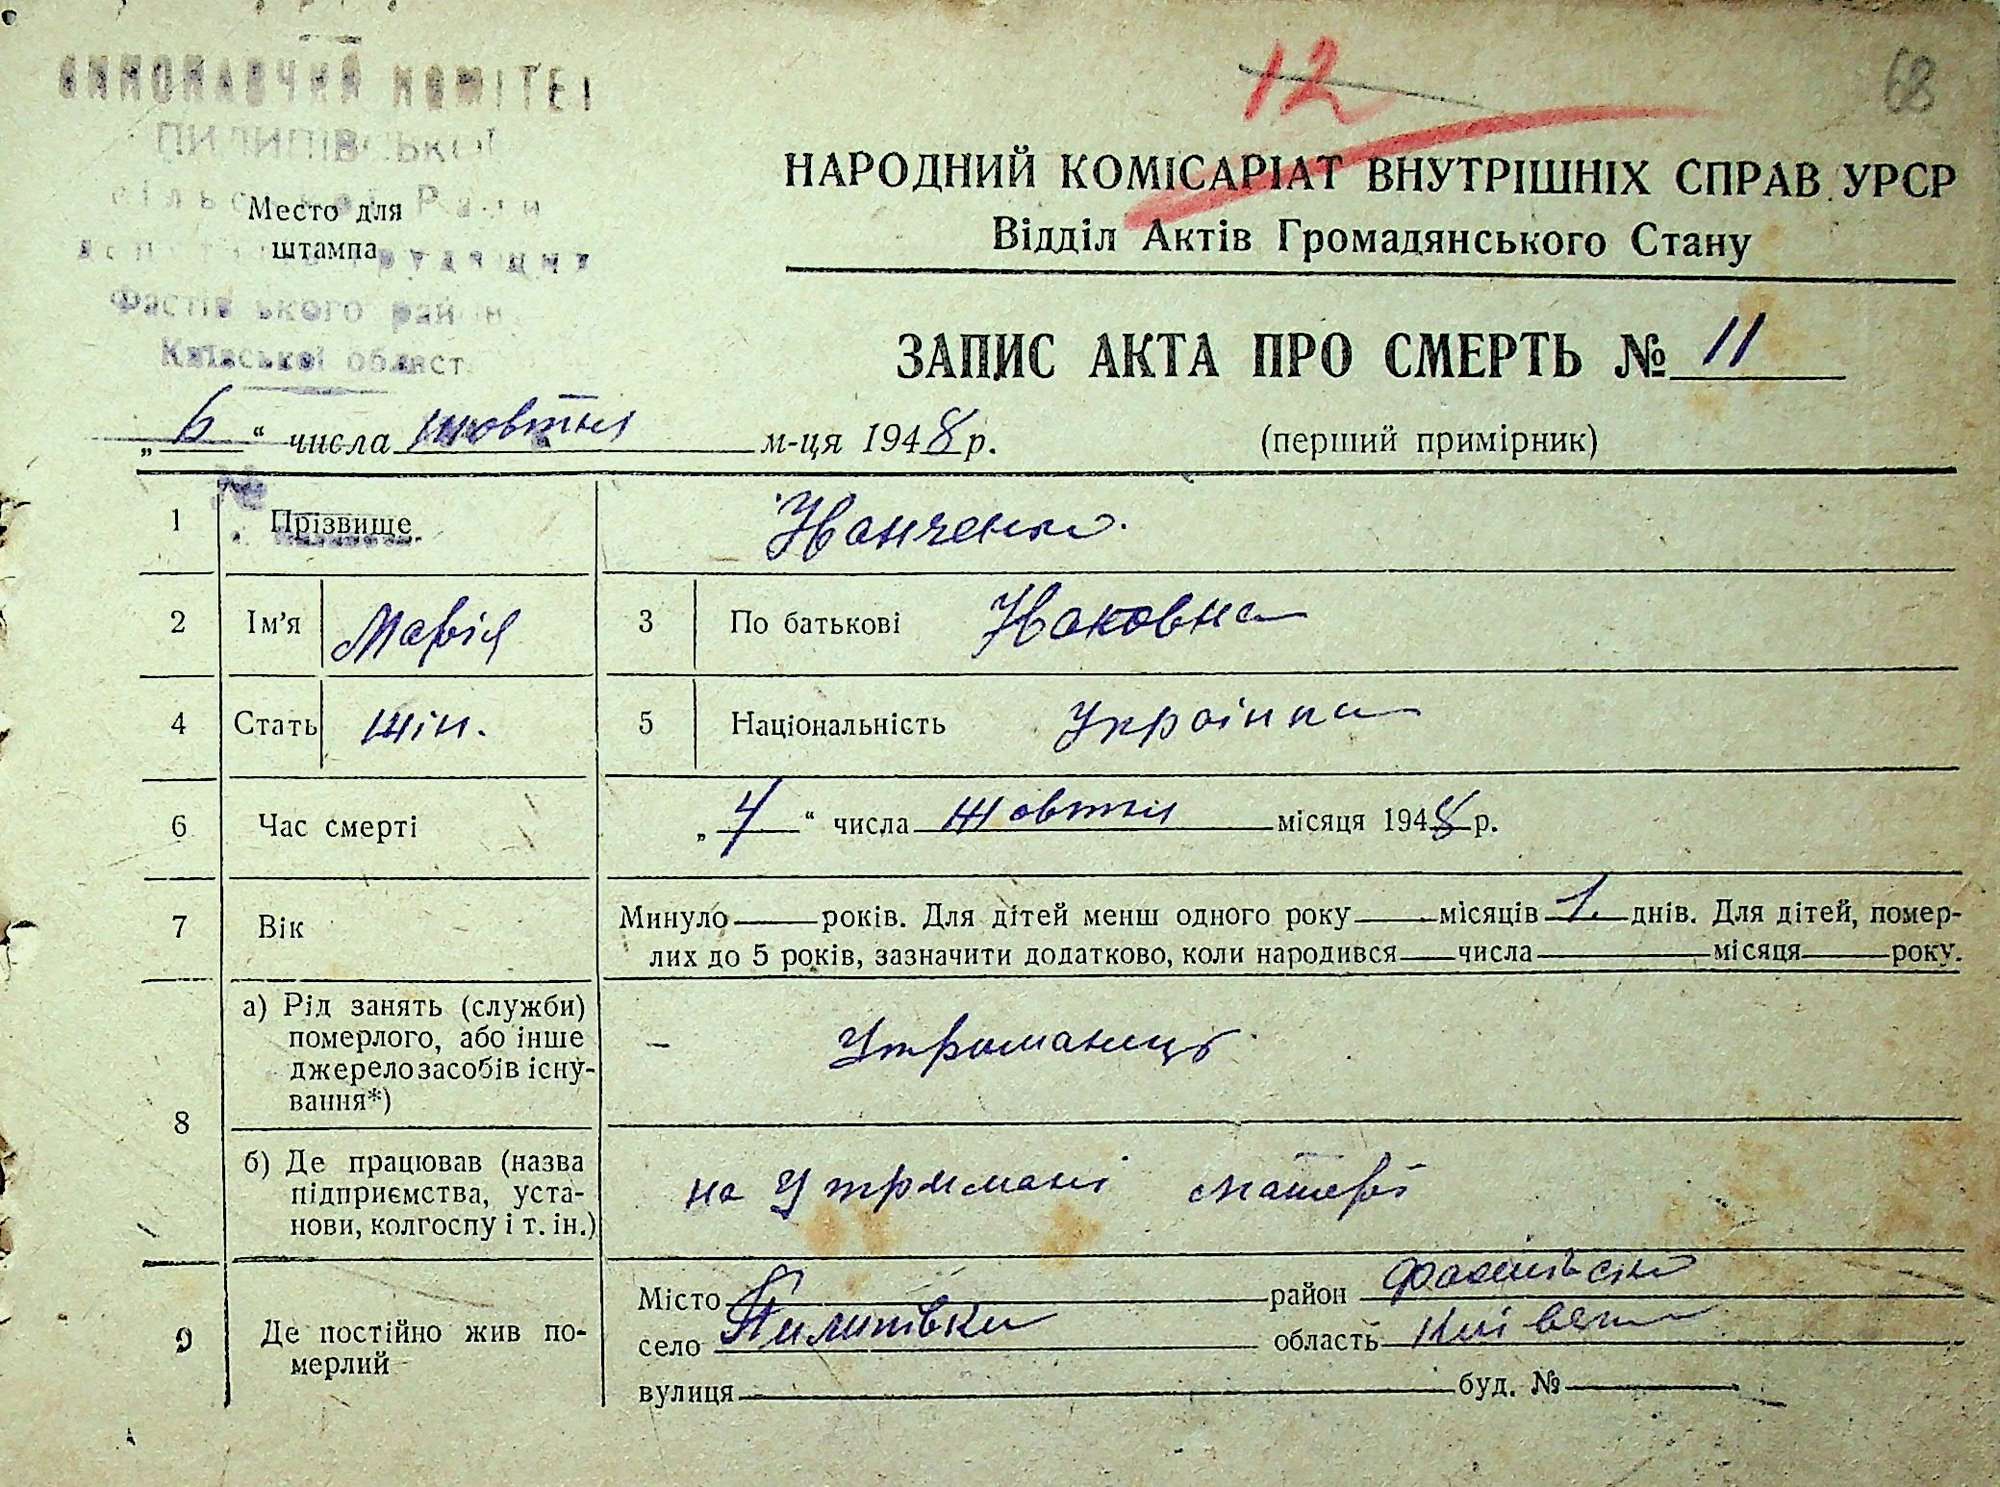 12
68
ВИКОНАВЧИЙ КОМІТЕТ
ПИЛИПІВСЬКОЇ
сільської Ради
депутатів трудящих
Фастівського району
Київської област
Место для
штампа
НАРОДНИЙ КОМІСАРІАТ ВНУТРІШНІХ СПРАВ УРСР
Відділ Актів Громадянського Стану
ЗАПИС АКТА ПРО СМЕРТЬ № 11
„6“ числа жовтня м-ця 1948 р.
(перший примірник)
№
1 Прізвище Іванченко.
2 Ім'я Марія 3 По батькові Іваковна
4 Стать жін. 5 Національність Українка
6 Час смерті „4“ числа жовтня місяця 1948 р.
7 Вік Минуло — років. Для дітей менш одного року — місяців 1. днів. Для дітей, помер-
лих до 5 років, зазначити додатково, коли народився — числа — місяця — року.
8 а) Рід занять (служби)
померлого, або інше
джерело засобів існу-
вання*)
– Утроманець
б) Де працював (назва
підприємства, уста-
нови, колгоспу і т. ін.)
на утримані матері
9 Де постійно жив по-
мерлий
Місто — район Фастівськ
село Пилипівки область Київськ
вулиця — буд. № —